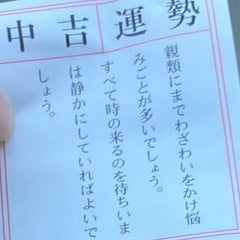 運勢
中吉
親類にまでわざわいをかけ悩
みごとが多いでしょう。
すべて時の来るのを待ちいま
は静かにしていればよいで
しょう。